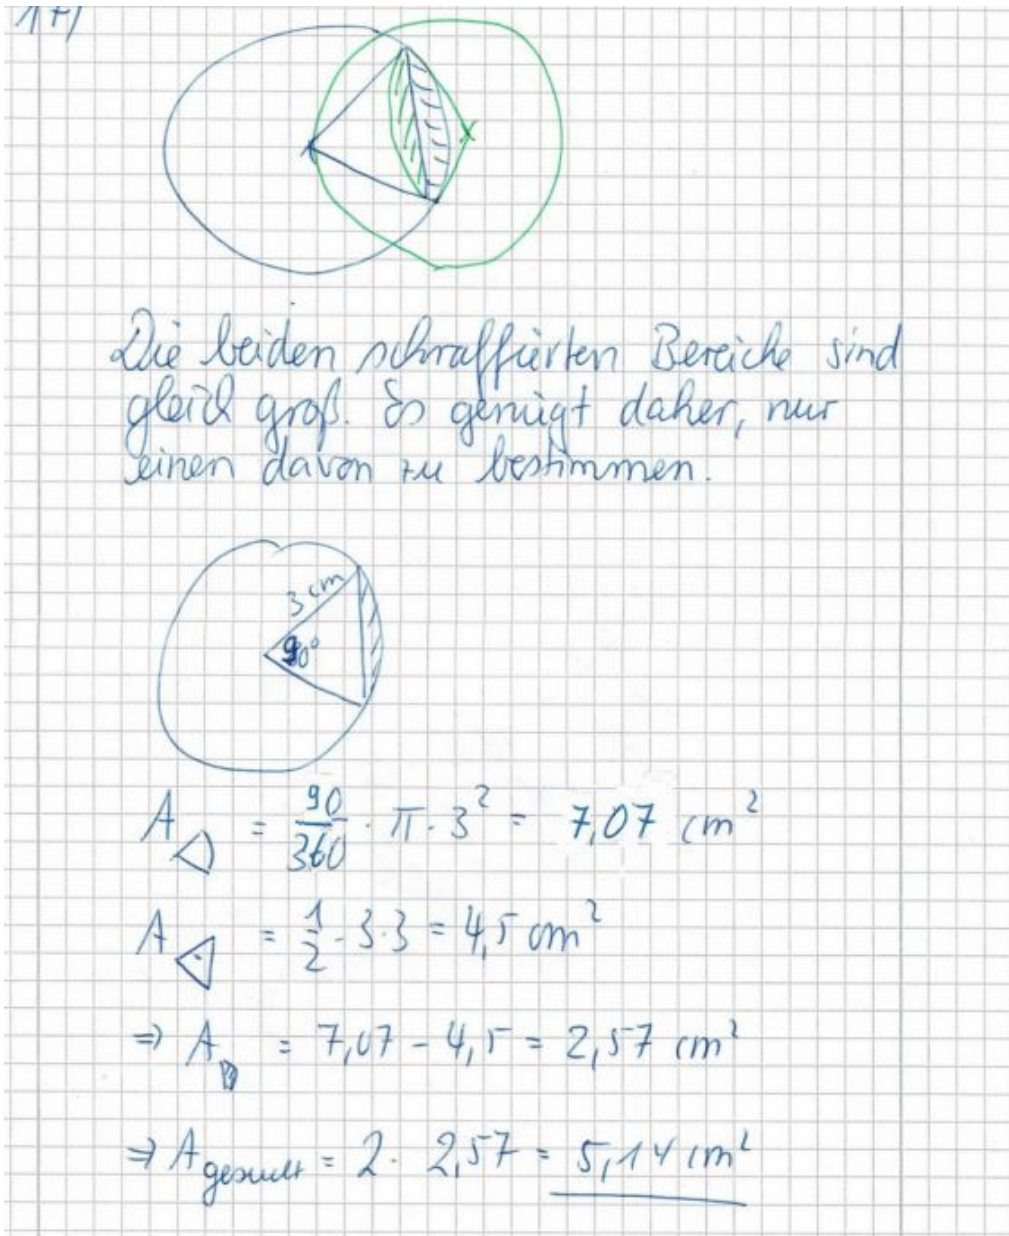 17)
Die beiden schraffierten Bereiche sind
gleich groß. Es genügt daher, nur
einen davon zu bestimmen.
3 cm
90°
A = 90/360 · π · 3² = 7,07 cm²
A = 1/2 · 3·3 = 4,5 cm²
⇒ A = 7,07 - 4,5 = 2,57 cm²
⇒ A gesucht = 2 · 2,57 = 5,14 cm²